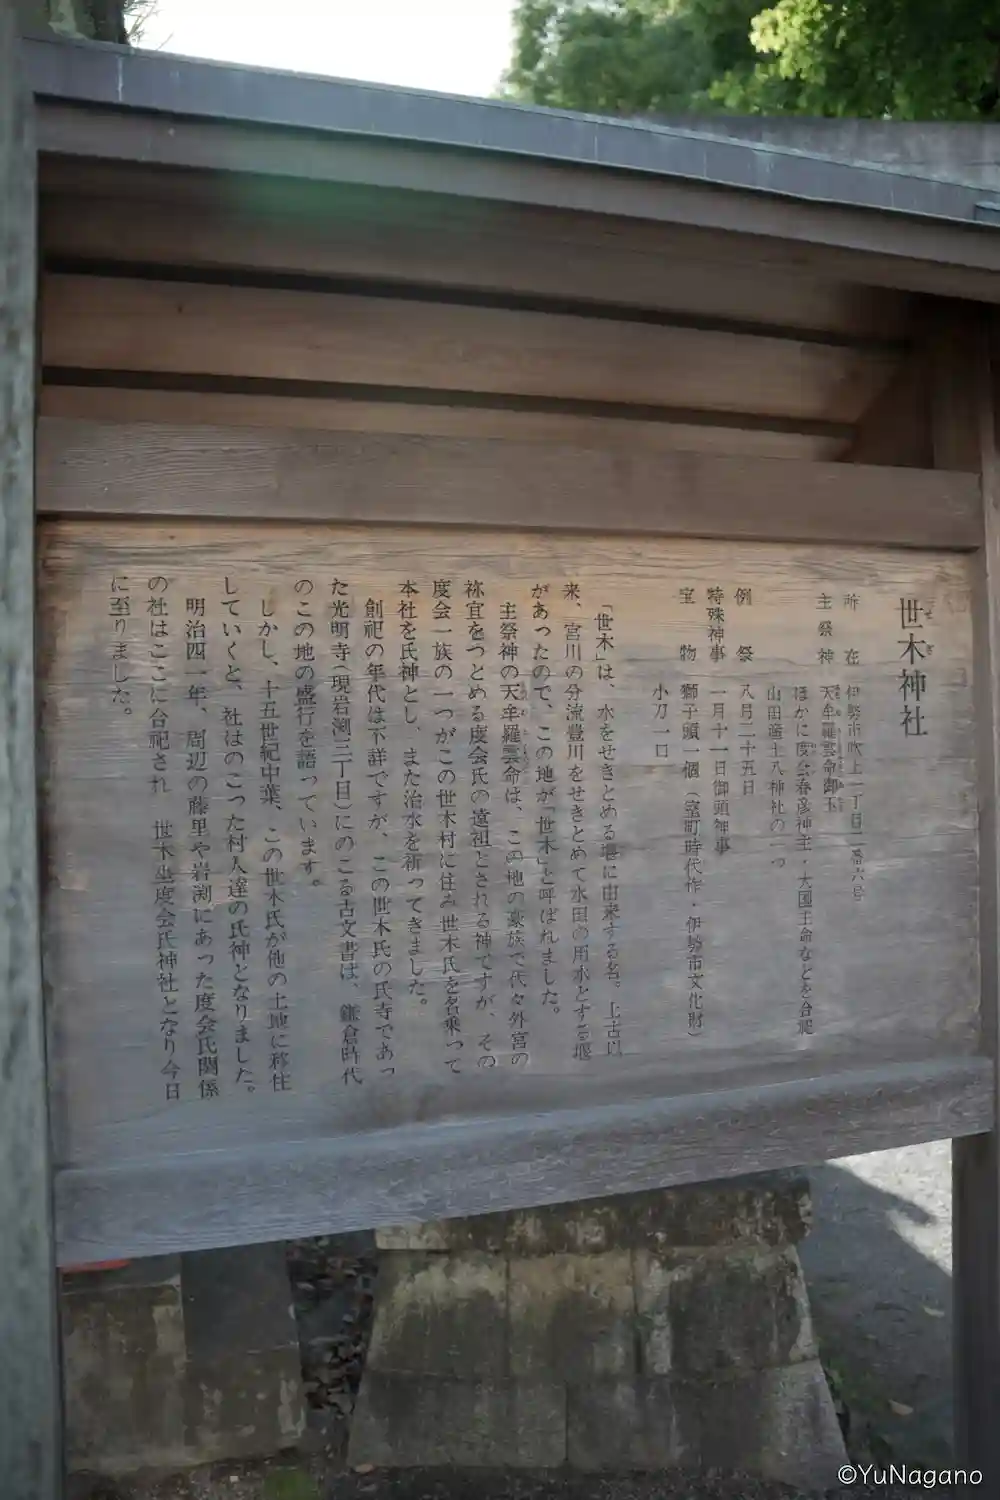 世木神社
所在 伊勢市吹上二丁目二番六号
主祭神 天牟羅雲命御玉
ほかに度会春彦神主・大国主命などを合祀
山田産土八神社の一つ
例祭 八月二十五日
特殊神事 一月十一日御頭神事
宝物 獅子頭一個(室町時代作・伊勢市文化財)
小刀一口
「世木」は、水をせきとめる堰に由来する名。上古以
来、宮川の分流豊川をせきとめて水田の用水とする堰
があったので、この地が「世木」と呼ばれました。
主祭神の天牟羅雲命は、この地の豪族で代々外宮の
祢宜をつとめる度会氏の遠祖とされる神ですが、その
度会一族の一つがこの世木村に住み世木氏を名乗って
本社を氏神とし、また治水を祈ってきました。
創祀の年代は不詳ですが、この世木氏の氏寺であっ
た光明寺(現岩渕三丁目)にのこる古文書は、鎌倉時代
のこの地の盛行を語っています。
しかし、十五世紀中葉、この世木氏が他の土地に移住
していくと、社はのこった村人達の氏神となりました。
明治四一年、周辺の藤里や岩渕にあった度会氏関係
の社はここに合祀され 世木坐度会氏神社となり今日
に至りました。
©YuNagano